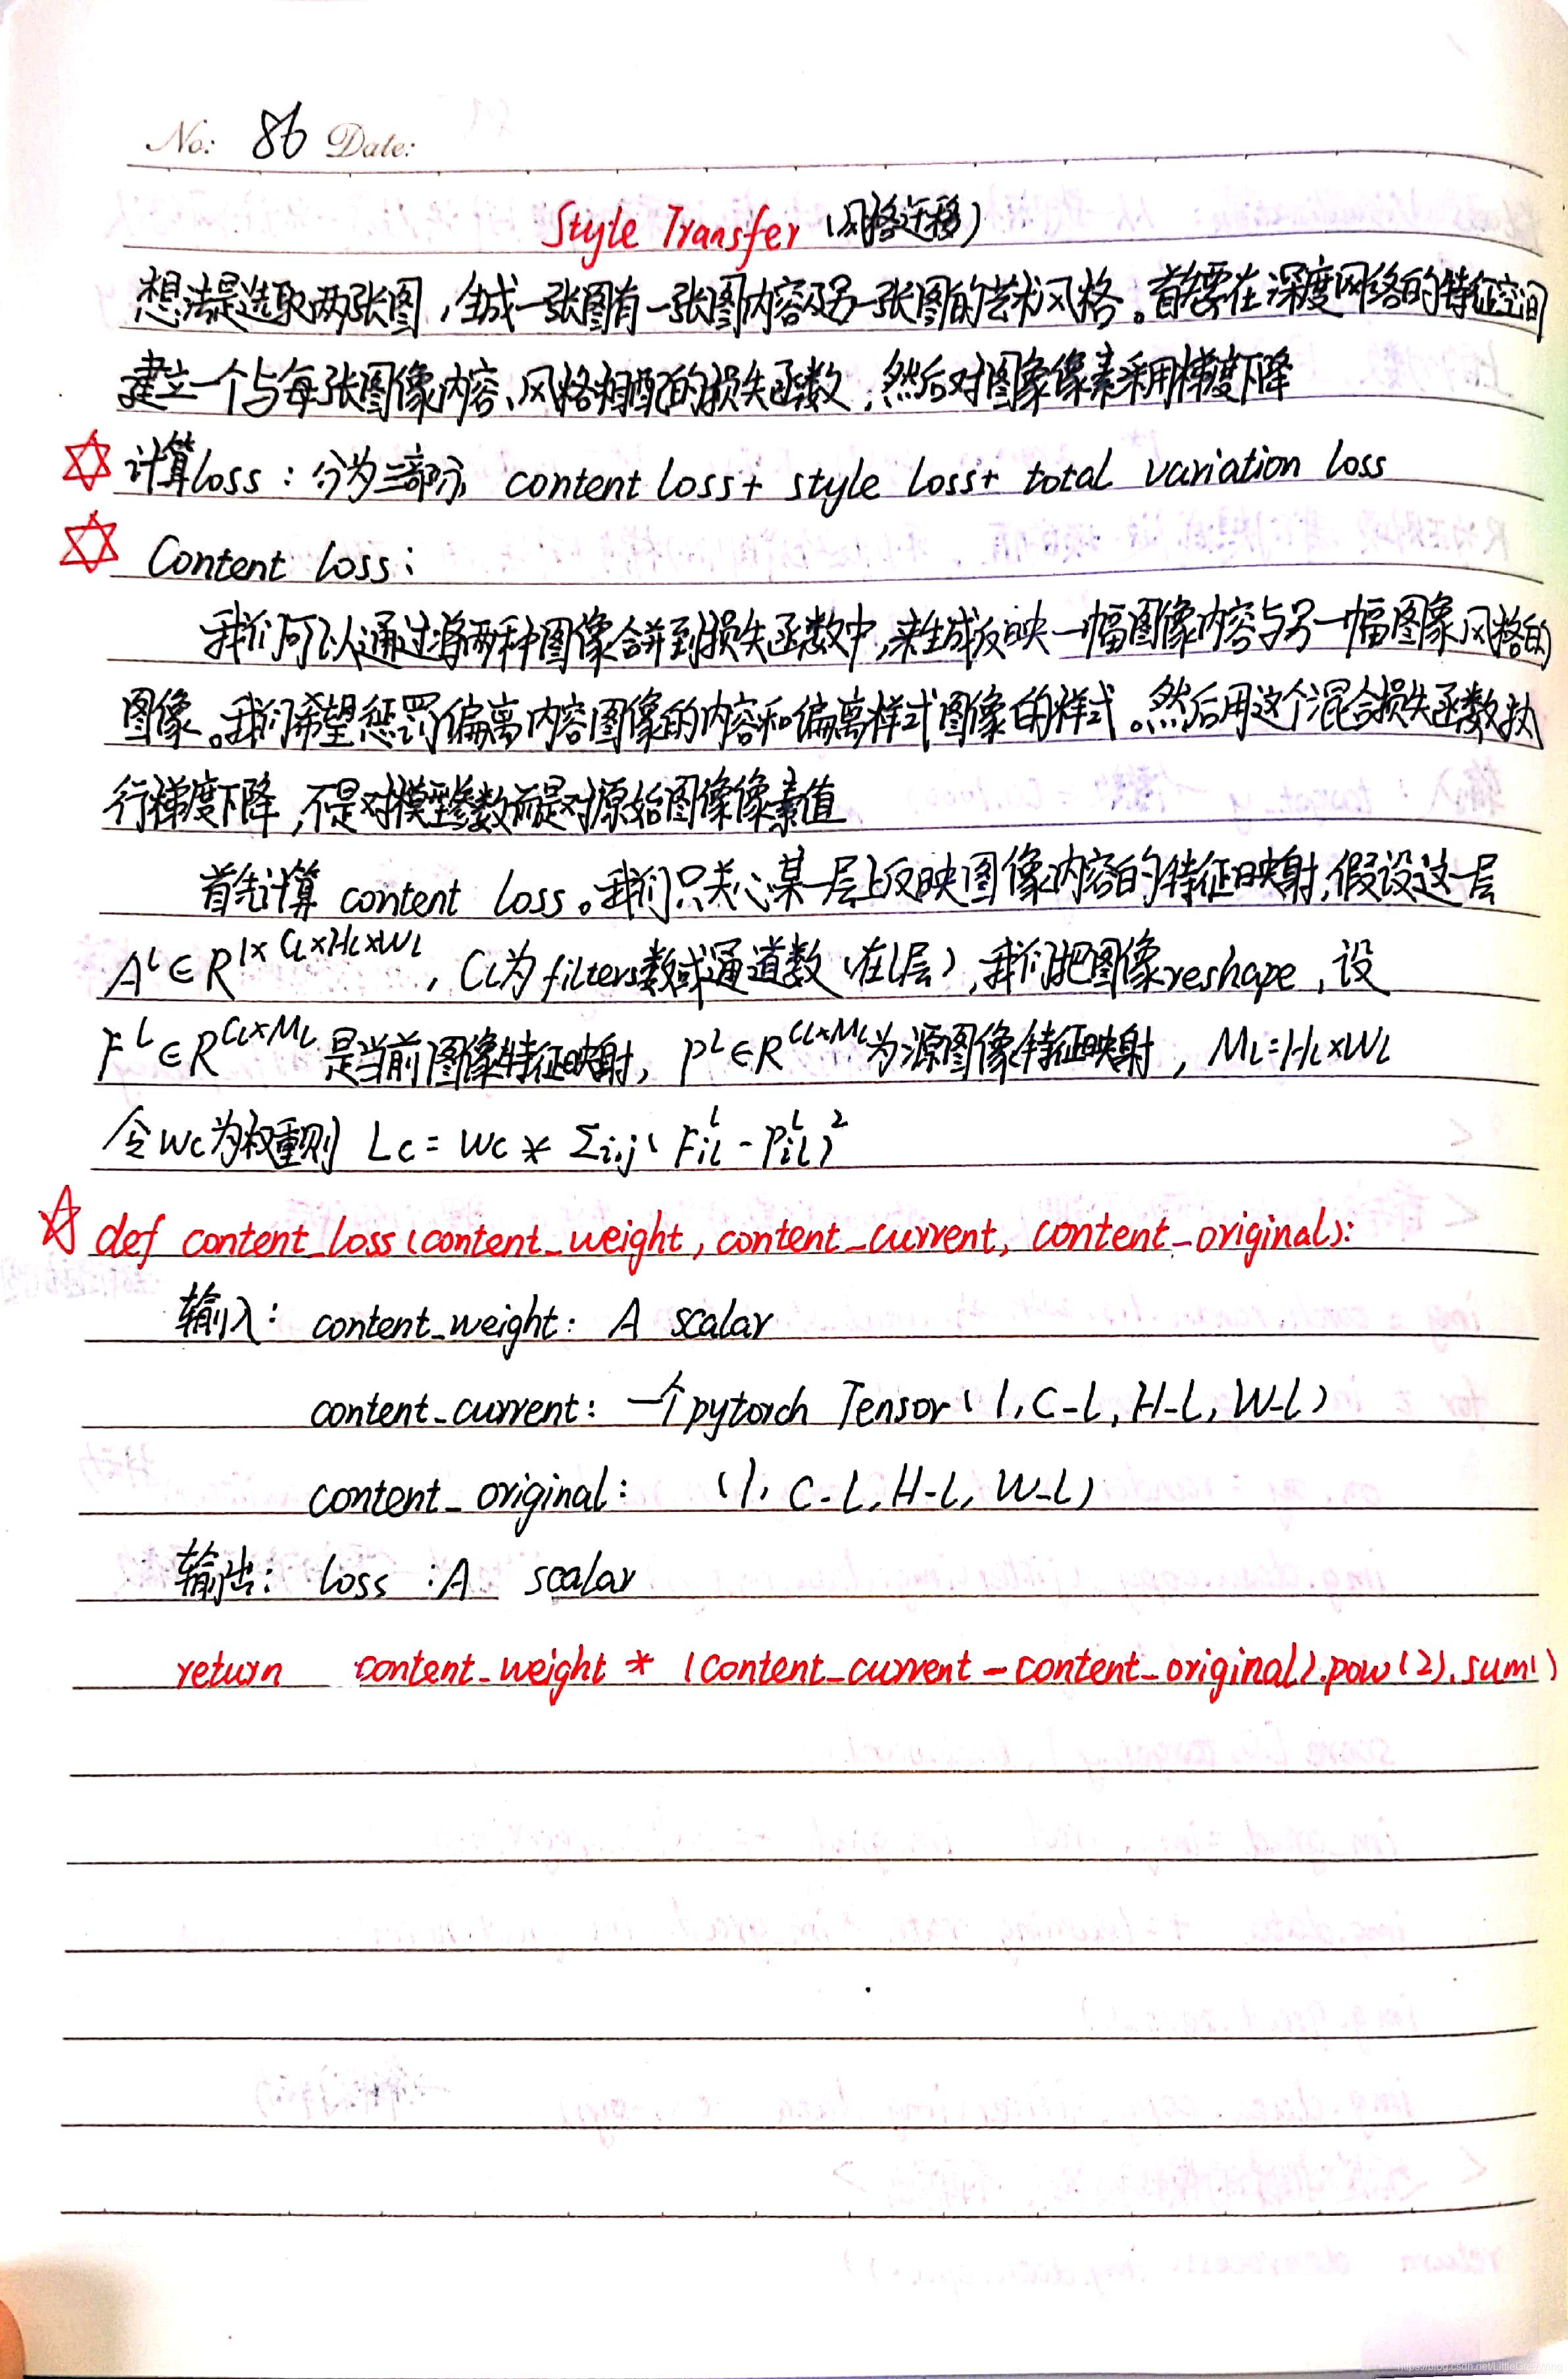 No: 86 Date:
Style Transfer (风格迁移)
想法是选取两张图,生成一张图有一张图内容及另一张图的艺术风格。首先要在深度网络的特征空间
建立一个与每张图像内容、风格相匹配的损失函数,然后对图像像素采用梯度下降
计算loss:分为三部分 content loss + style loss + total variation loss
Content loss:
我们可以通过将两种图像合并到损失函数中,来生成反映一幅图像内容与另一幅图像风格的
图像。我们希望惩罚偏离内容图像的内容和偏离样式图像的样式。然后用这个混合损失函数执
行梯度下降,不是对模型参数而是对原始图像像素值
首先计算 content loss。我们只关心某一层上反映图像内容的特征映射,假设这一层
A^l ∈ R^{1×C_l×H_l×W_l}, C_l为filters数或通道数(在l层),我们把图像reshape,设
F^l ∈ R^{C_l×M_l} 是当前图像特征映射, P^l ∈ R^{C_l×M_l}为源图像特征映射, M_l=H_l×W_l
令wc为权重则 Lc = wc * Σi,j(F_{il}^l - P_{il}^l)^2
def content_loss(content_weight, content_current, content_original):
输入: content_weight: A scalar
content_current: 一个pytorch Tensor (1, C_l, H_l, W_l)
content_original: (1, C_l, H_l, W_l)
输出: loss :A scalar
return content_weight * (content_current - content_original).pow(2).sum()